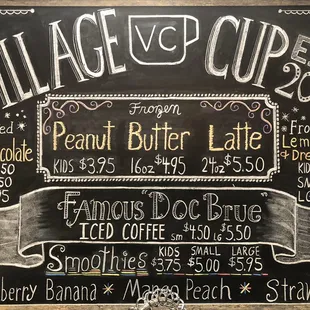 VILLAGE VC CUP ES
20
Frozen
Peanut Butter Latte
KIDS $3.95 16oz $4.95 24oz $5.50
ocolate
Fro
Lem
& Dre
KIDS
Famous "Doc Brue"
ICED COFFEE SM $4.50 LG $5.50
Smoothies KIDS $3.75 SMALL $5.00 LARGE $5.95
berry Banana * Mango Peach * Straw